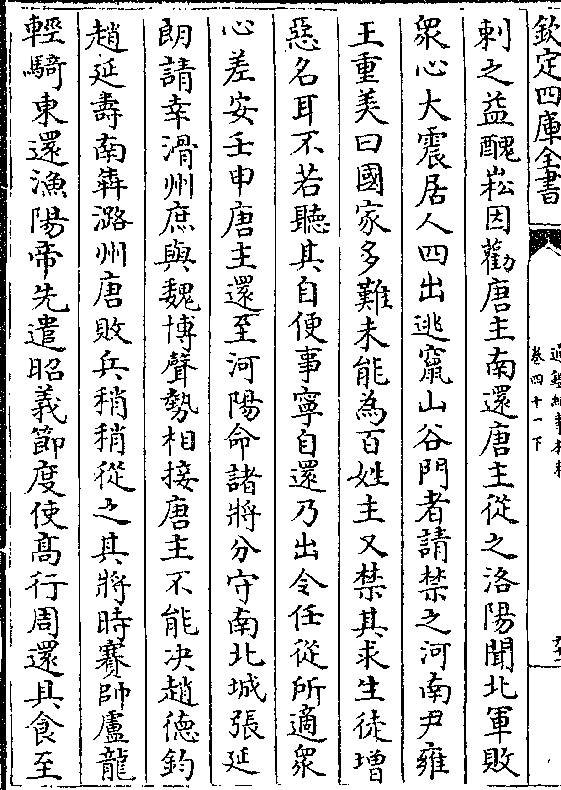 欽定四庫全書
通鑑紀事本末
卷四十一下
刺之益醜崧因勸唐主南還唐主從之洛陽聞北軍敗
衆心大震居人四出逃竄山谷門者請禁之河南尹雍
王重美曰國家多難未能為百姓主又禁其求生徒增
惡名耳不若聽其自便事寧自還乃出令任從所適衆
心差安壬申唐主還至河陽命諸將分守南北城張延
朗請幸滑州庶與魏博聲勢相接唐主不能决趙德鈞
趙延壽南犇潞州唐敗兵稍稍從之其將時賽帥盧龍
輕騎東還漁陽帝先遣昭義節度使髙行周還具食至